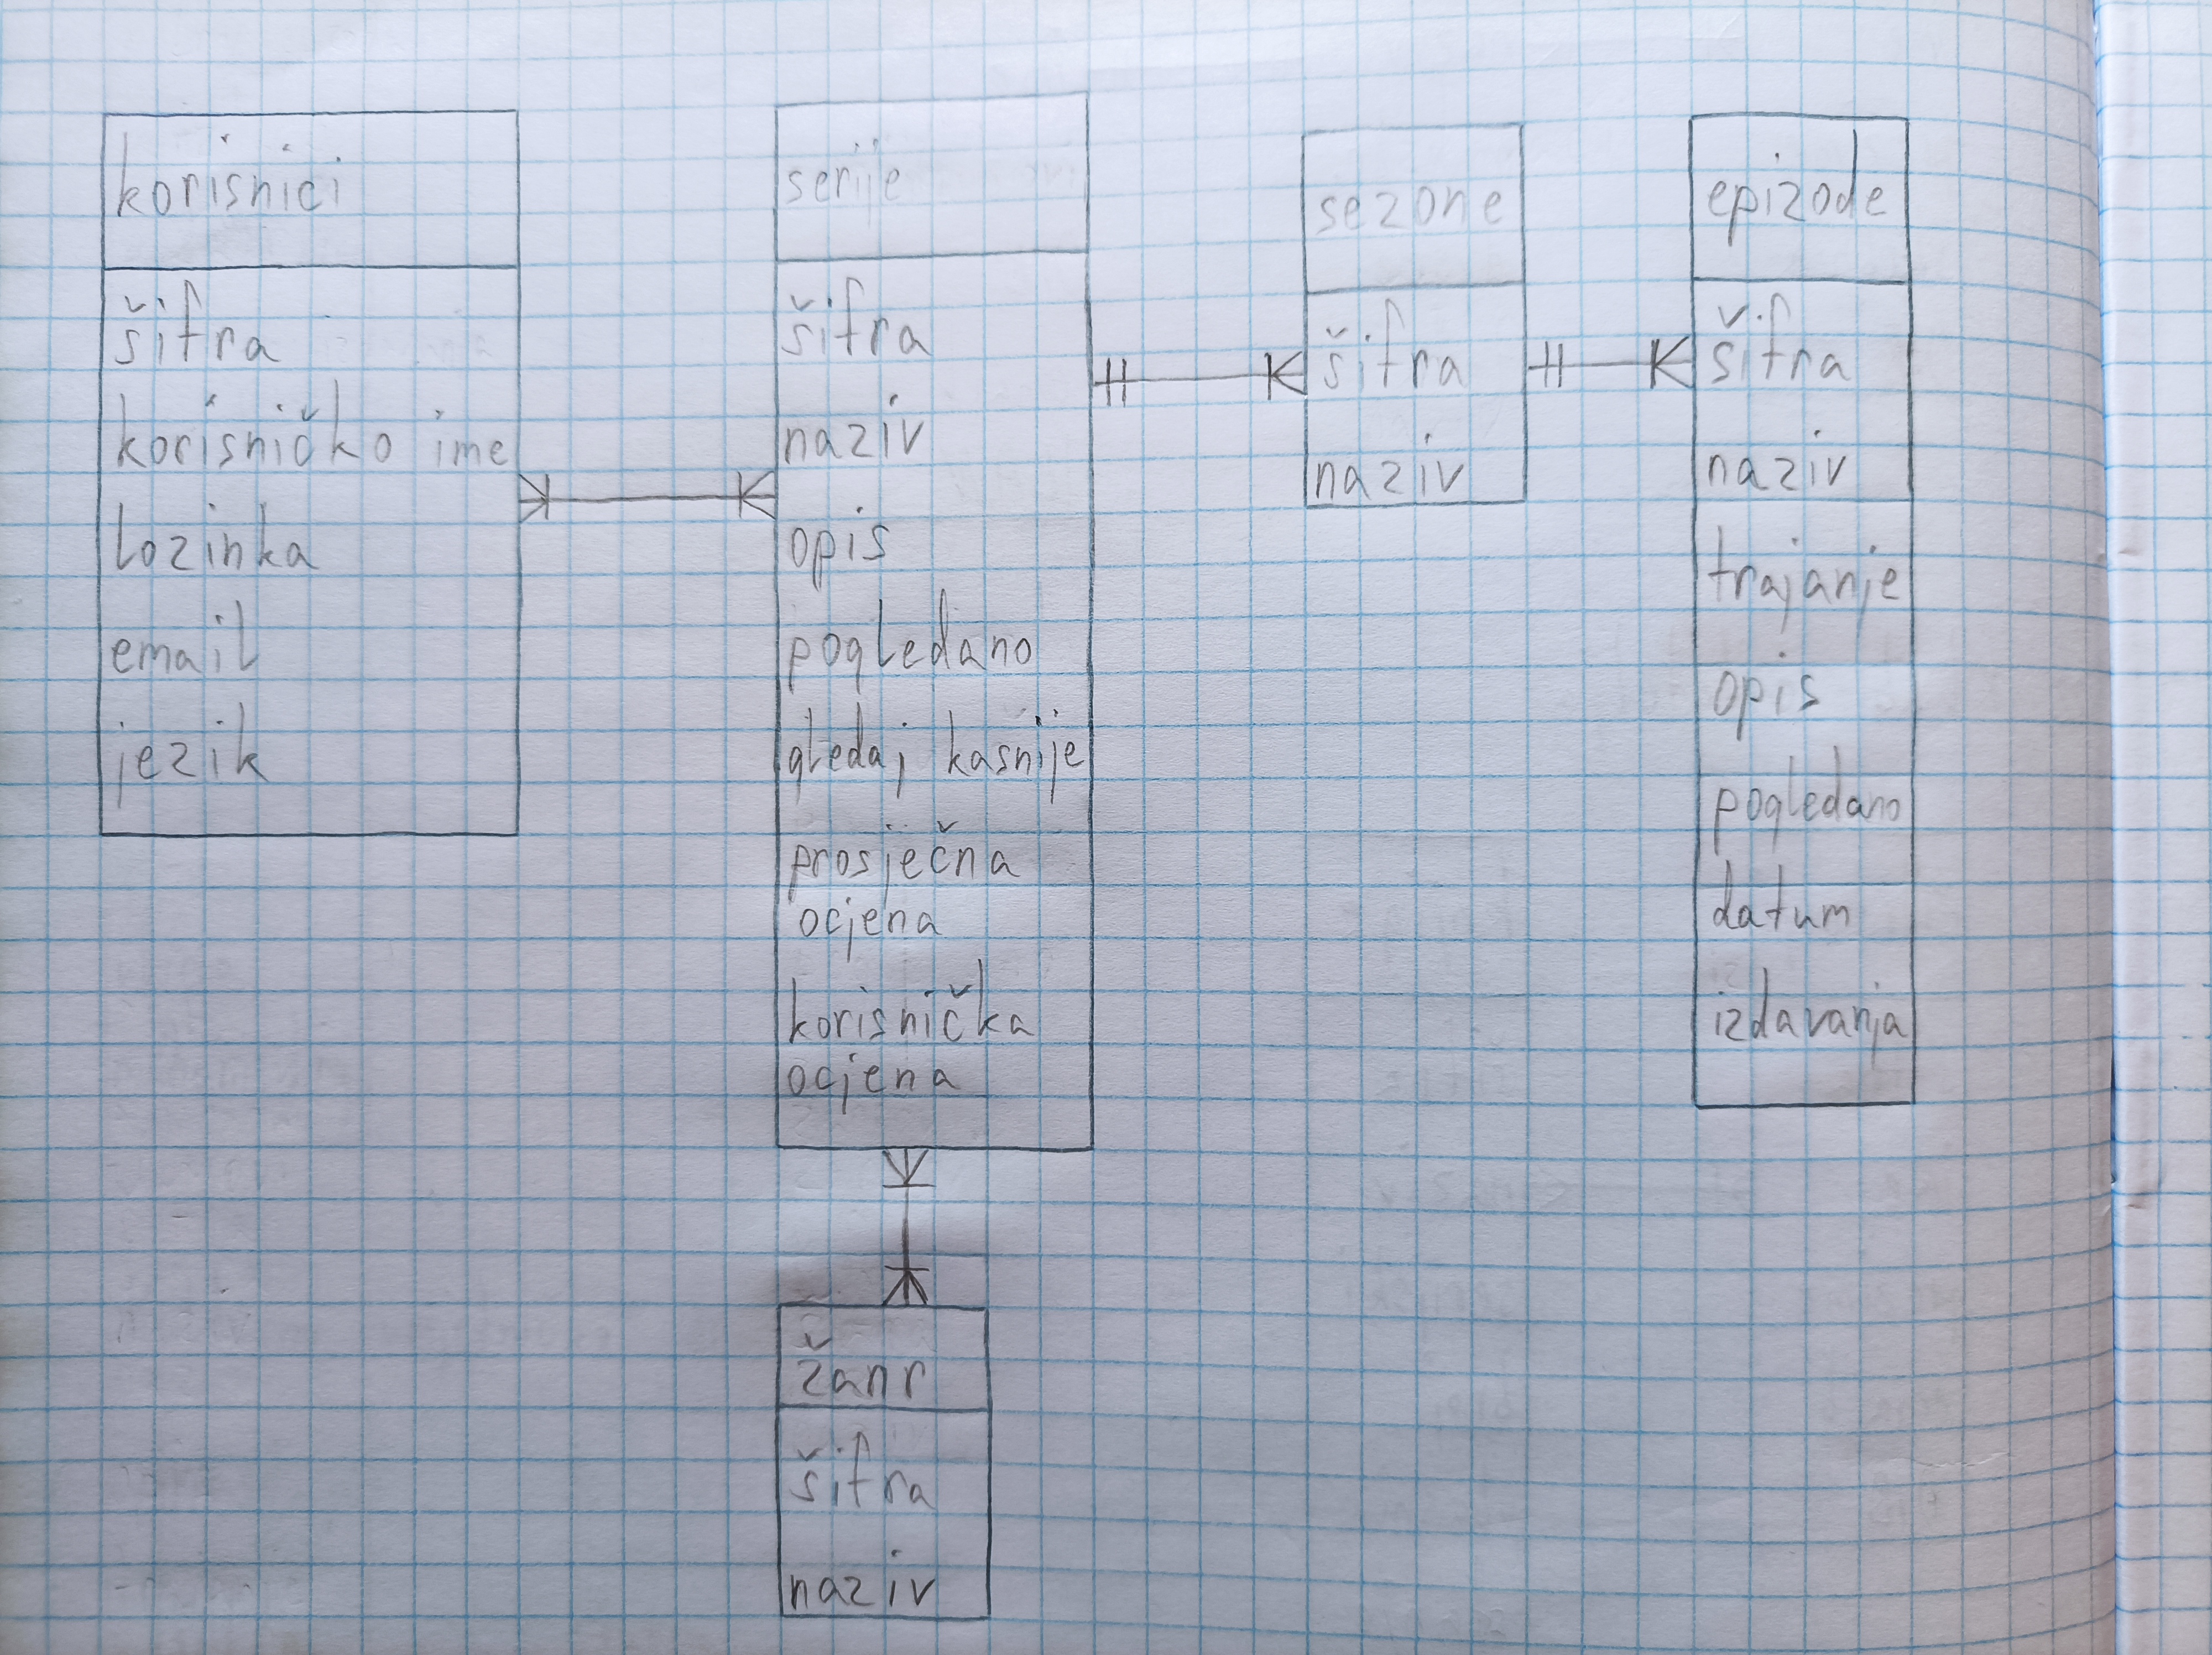 korisnici
šifra
korisničko ime
lozinka
email
jezik
serije
šifra
naziv
opis
pogledano
gledaj kasnije
prosječna
ocjena
korisnička
ocjena
sezone
šifra
naziv
epizode
šifra
naziv
trajanje
opis
pogledano
datum
izdavanja
žanr
šifra
naziv